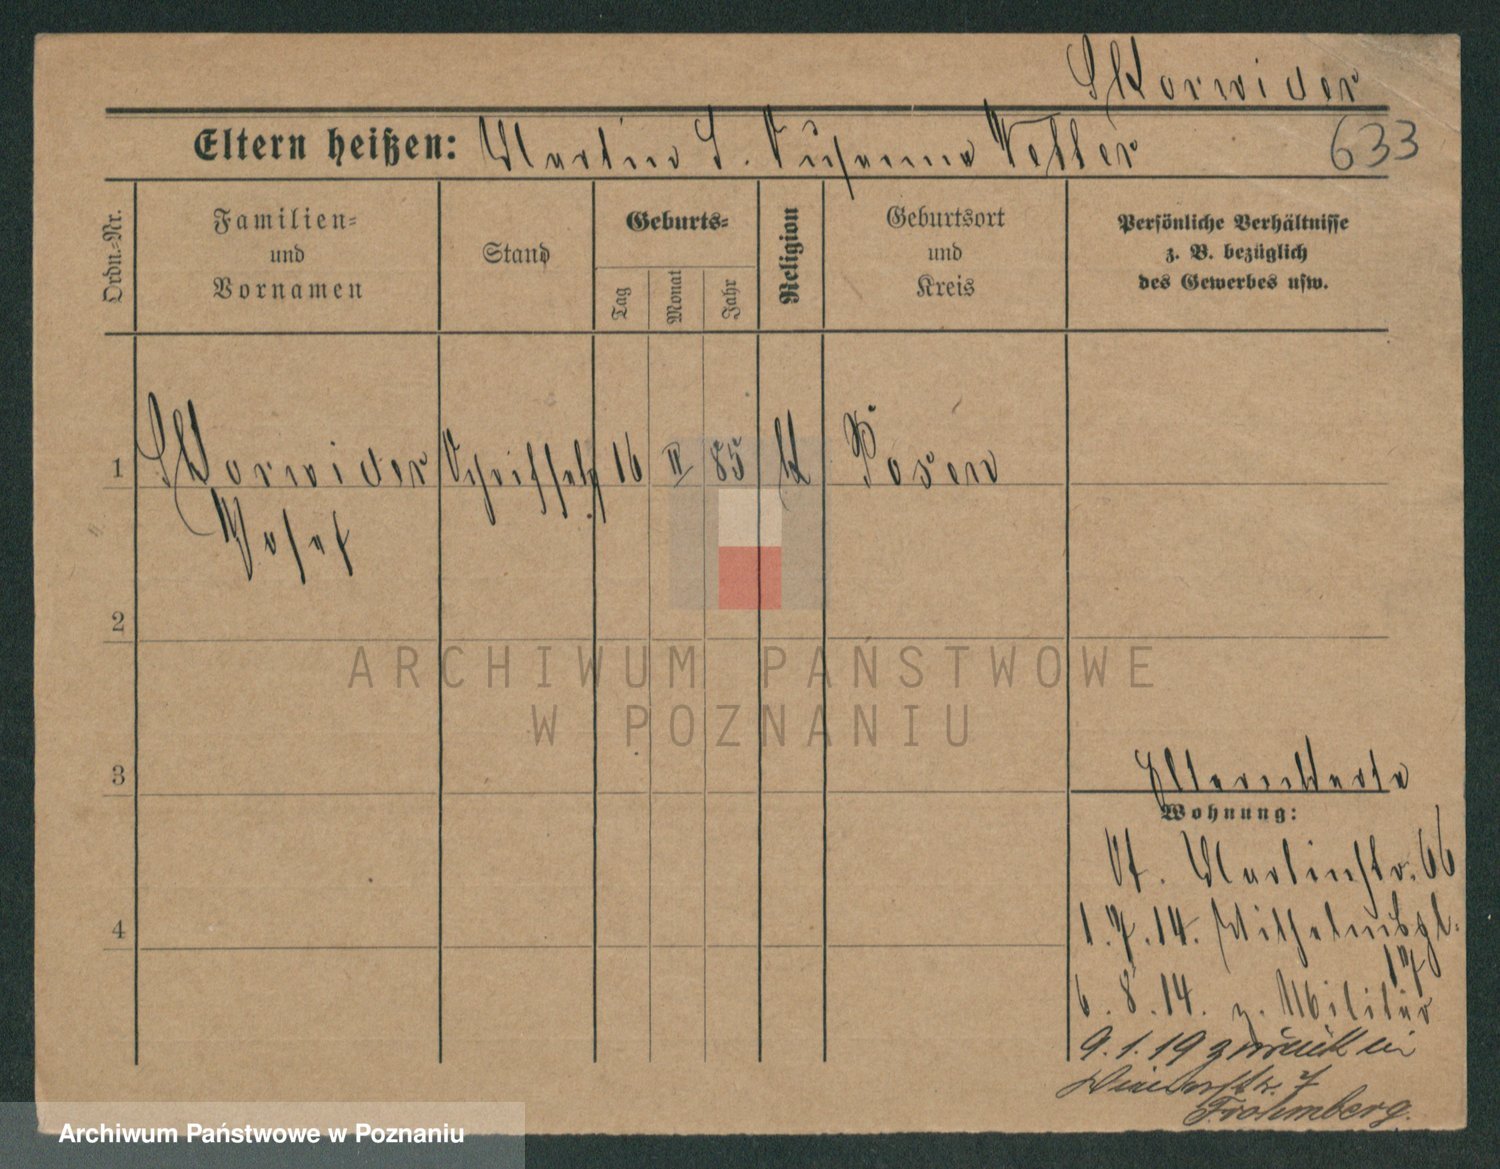 Skorwider
Eltern heißen: Martin S. Susanna Veller
633
Ordn.-Nr.
Familien-
und
Vornamen
Stand
Geburts-
Tag
Monat
Jahr
Religion
Geburtsort
und
Kreis
Persönliche Verhältnisse
z. B. bezüglich
des Gewerbes usw.
1
Skorwider
Josef
Schriftsetz
16
II
85
K
Posen
2
3
4
Elternkarte
Wohnung:
St. Martinstr. 66
1.7.14. Wilhelmspl.
17
6.8.14. z. Militär
9.1.19 zurück in
7
Frohmberg.
ARCHIWUM PAŃSTWOWE
W POZNANIU
Archiwum Państwowe w Poznaniu